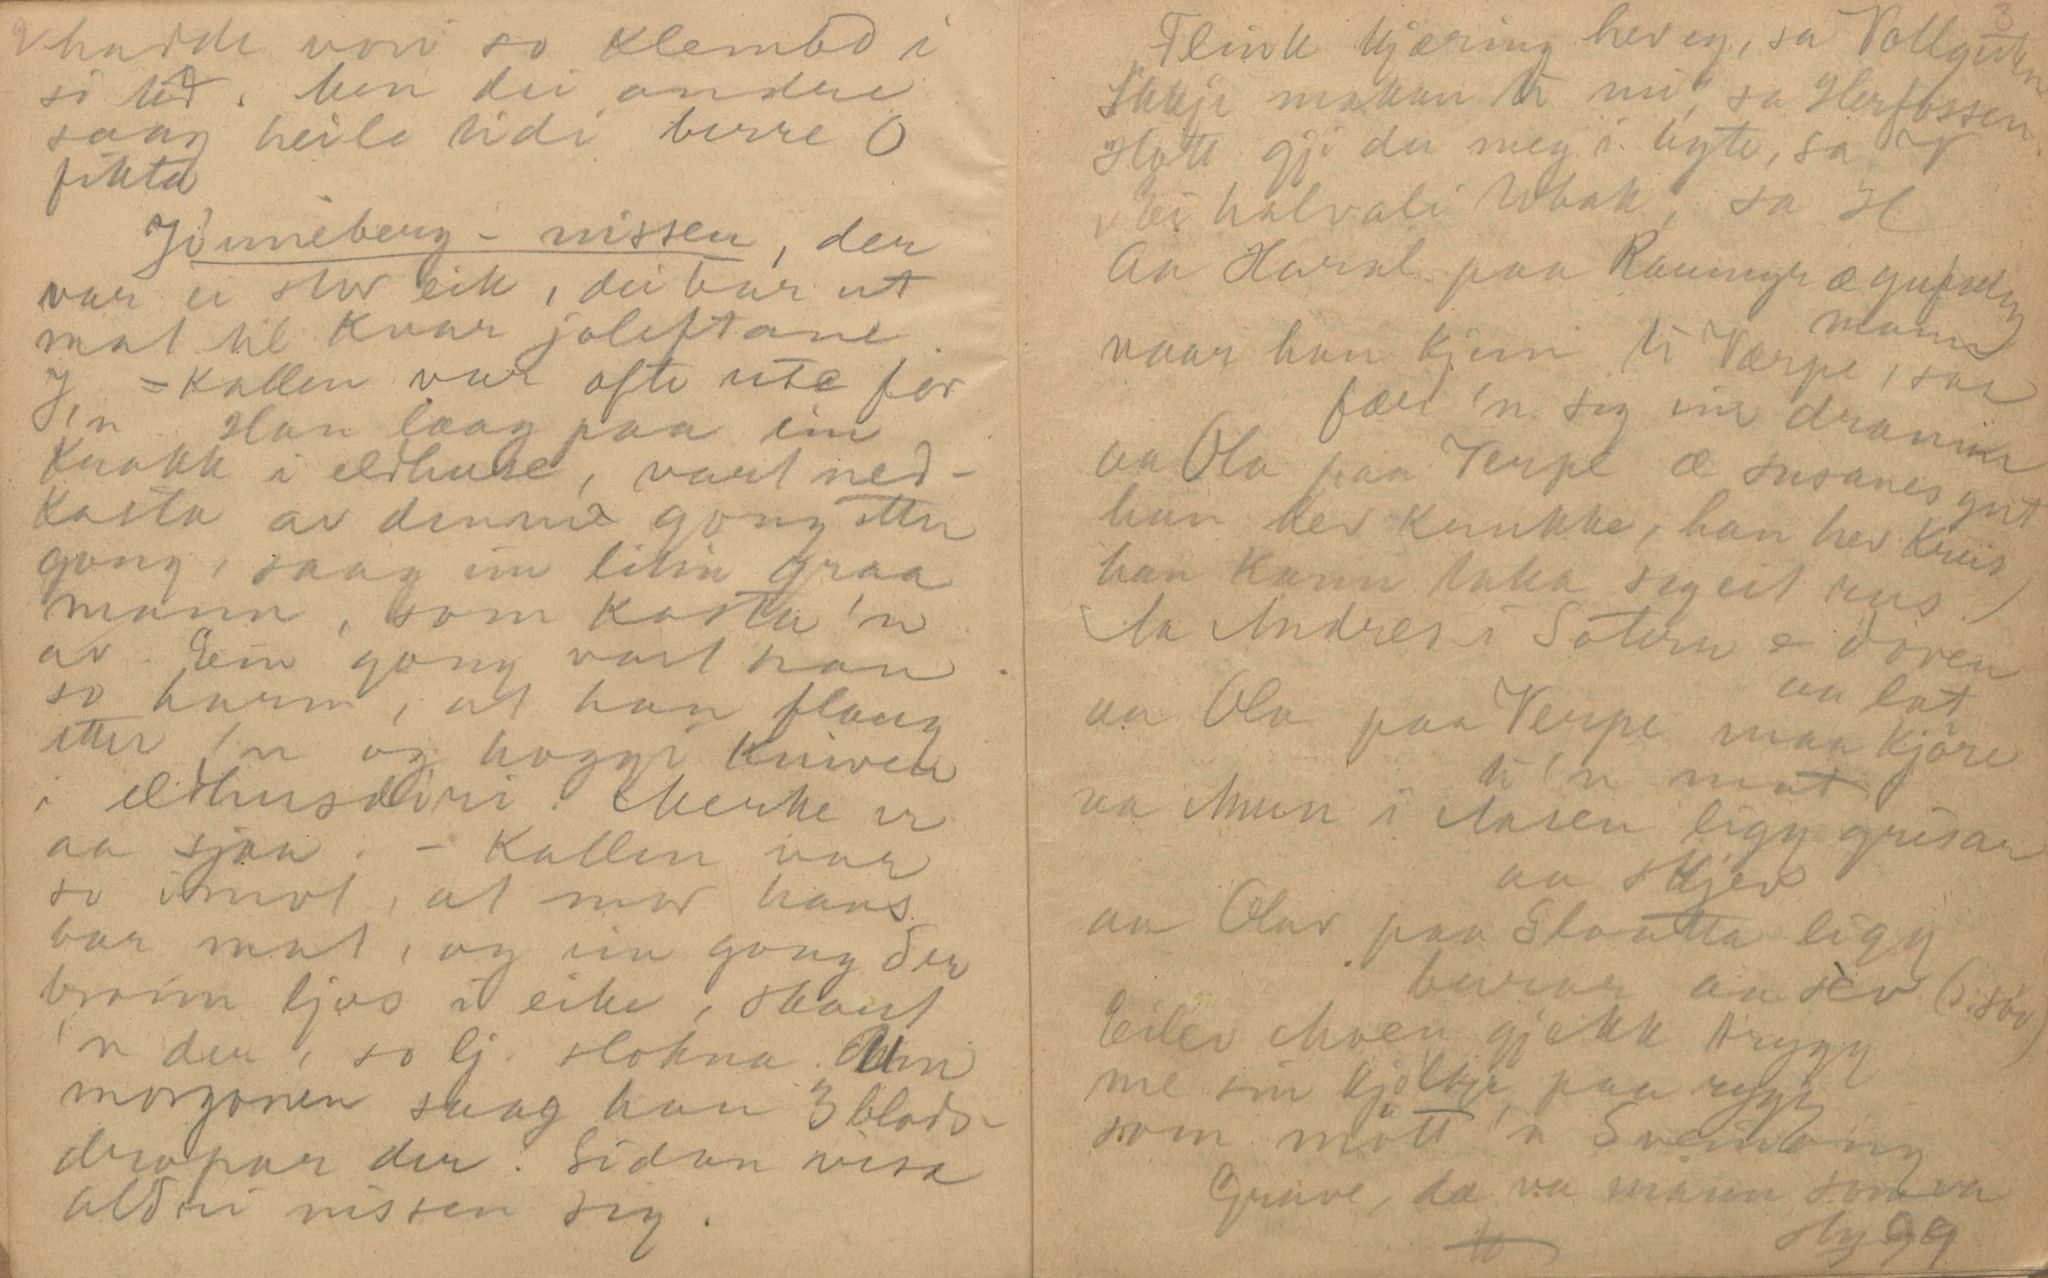 2
hadde vori so klembd i
si tid. Men dei andre
saag heile tidi berre O
fikta
Jönneberg-nissen, der
var ei stor eik, dei bar ut
mat til kvar joleftane.
J. -Kallen var ofte ute for
'n. Han laag paa ein
Knakk i eldhuse, vart ned-
kasta av denne gong etter
gong, saag ein liten graa
mann, som kasta 'n
av. Ein gong vart han
so harm, at han flaug
etter 'n og hoggi kniven
i eldhusdöri. Merke er
aa sjaa. - Kallen var
so imot, at mor hans
bar mat, og ein gong der
brann ljos i eike, skaut
'n der, so lj. slokna. Um
morgonen saag han 3 blods-
dropar der. Sidan visa
aldri nissen sig.
3
"Flink kjæring hev eg, sa Vollguten
Ikkje makan ti mi, sa Herfossen
Hott gji du meg i byte, sa V
ei halvali tobak, sa H
Aa Haral paa Raumyr æ gufselig
mann
naar han kjem ti Værpe, saa
fær 'n sig ein drammer
aa Ola paa Verpe æ Susanes gut
han hev krukke, han hev krus
han kann taka seg eit rus
Aa Andres i Soteru æ doven
aa lat
aa Ola paa Verpe maa kjöre
ti 'n mat
aa Amun i Aasen ligg grisar
aa skjev
aa Olav paa Slaatta ligg
burar aa sèv (: söv)
Eilev Moen gjekk trygg
me sin kjölkje paa rygg
som mött 'n Sveinong
Grave, dæ va mann som va
stygg